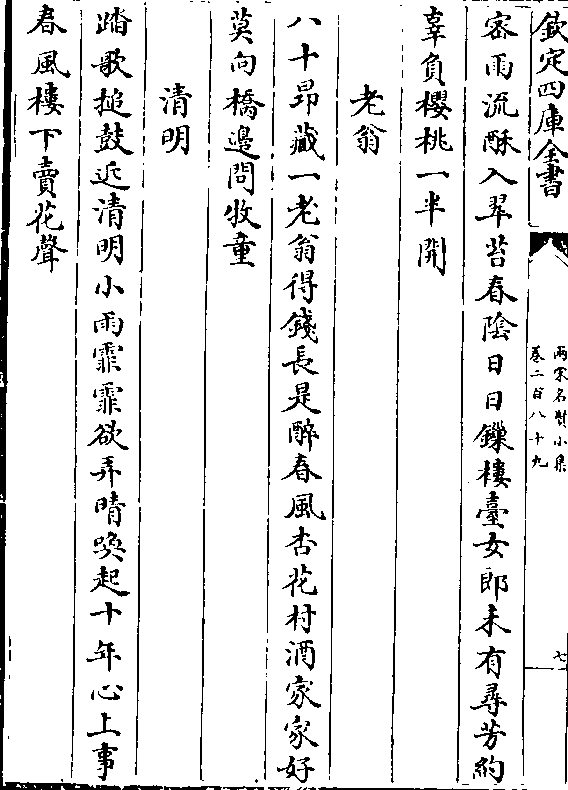 欽定四庫全書
兩宋名賢小集
卷二百八十九
七
密雨流酥入翠苔春陰日日鏁樓臺女郎未有尋芳約
辜負櫻桃一半開
老翁
八十昂藏一老翁得錢長是醉春風杏花村酒家家好
莫向橋邊問牧童
清明
踏歌搥鼓近清明小雨霏霏欲弄晴喚起十年心上事
春風樓下賣花聲